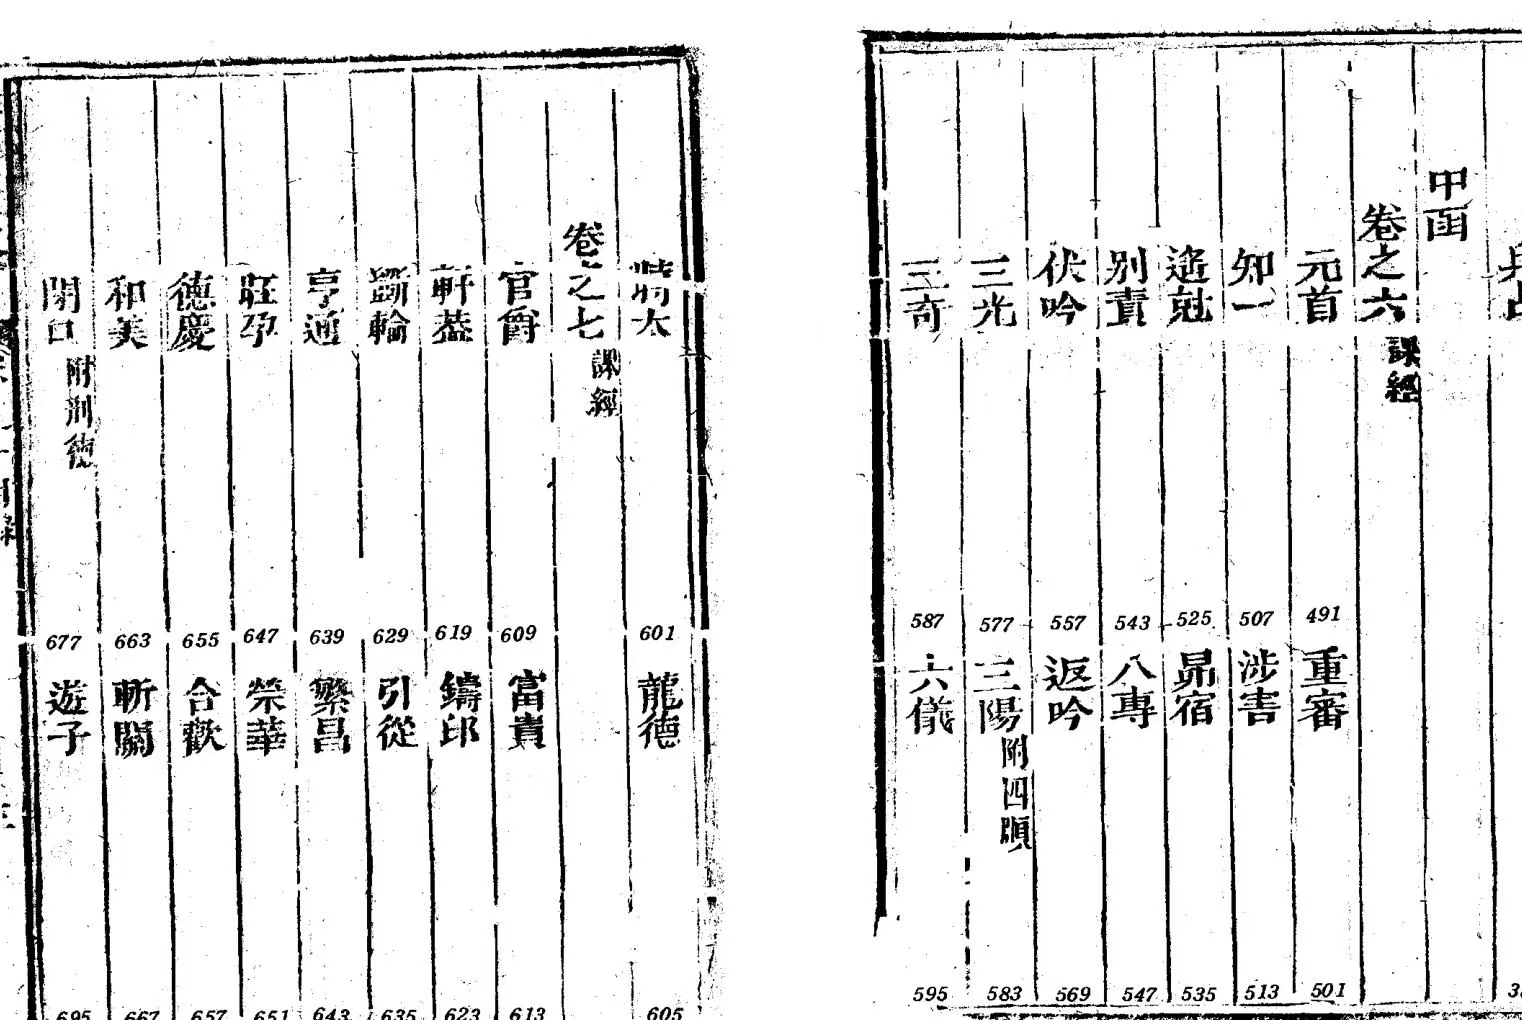 甲函
卷之六 課經
元首 491 重審 501
知一 507 涉害 513
遙尅 525 昴宿 535
別責 543 八專 547
伏吟 557 返吟 569
三光 577 三陽 附四順 583
三奇 587 六儀 595
時太 601 龍德 605
卷之七 課經
官爵 609 富貴 613
軒蓋 619 鑄印 623
斵輪 629 引從 635
亨通 639 繁昌 643
旺孕 647 榮華 651
德慶 655 合歡 657
和美 663 斬關 667
閉口 附刑德 677 遊子 695